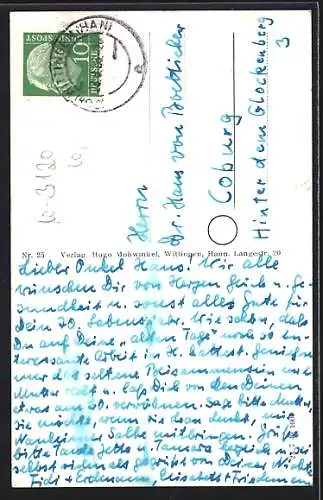 DEUTSCHE
BUNDESPOST
10
(HAN)
10-3120
10,
Herrn
Dr. Hans von Boetticher
Coburg
Hinter dem Glockenberg
3
Nr. 25 Verlag Hugo Mohwinkel, Wittingen, Hann. Langestr. 20
Lieber Onkel Hans! Wir alle
wünschen Dir von Herzen Glück u. Ge-
sundheit u. sonst alles Gute für
Dein 70. Lebensjahr. Wie schön, daß
Du auf Deine "alten Tage" noch so in-
teressante Arbeit in H. hattest. Genieße
nur das seltene Beisammensein mit
Mutter u. laß Dich von den Deinen
etwas am 30. verwöhnen. Sage bitte Mutter,
sie möchte, wenn sie doch denkt, mir
Salbe mitbringen. Grüße
bitte Tante Jetta u. Tamara herzlich u. sei
selbst vielmals gegrüßt von Deiner Nichte
Fidi + Erdmann, Elisabeth + Friedemann